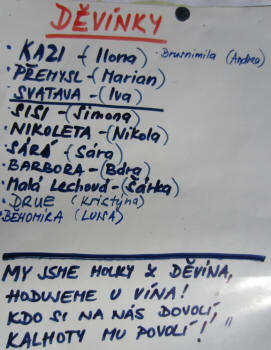 DĚVÍNKY
· KAZI - (Ilona) · Brusnimila (Andrea)
· PŘEMYSL - (Marian)
· SVATAVA - (Iva)
· SISI - (Simona)
· NIKOLETA - (Nikola)
· SÁRÁ - (Sára)
· BARBORA - (Bára)
· Malá Lechová - (Šárka)
· DRUE (Kristýna)
· BĚHOMÍRA (LUISA)
MY JSME HOLKY Z DĚVÍNA,
HODUJEME U VÍNA!
KDO SI NA NÁS DOVOLÍ,
KALHOTY MU POVOLÍ! "